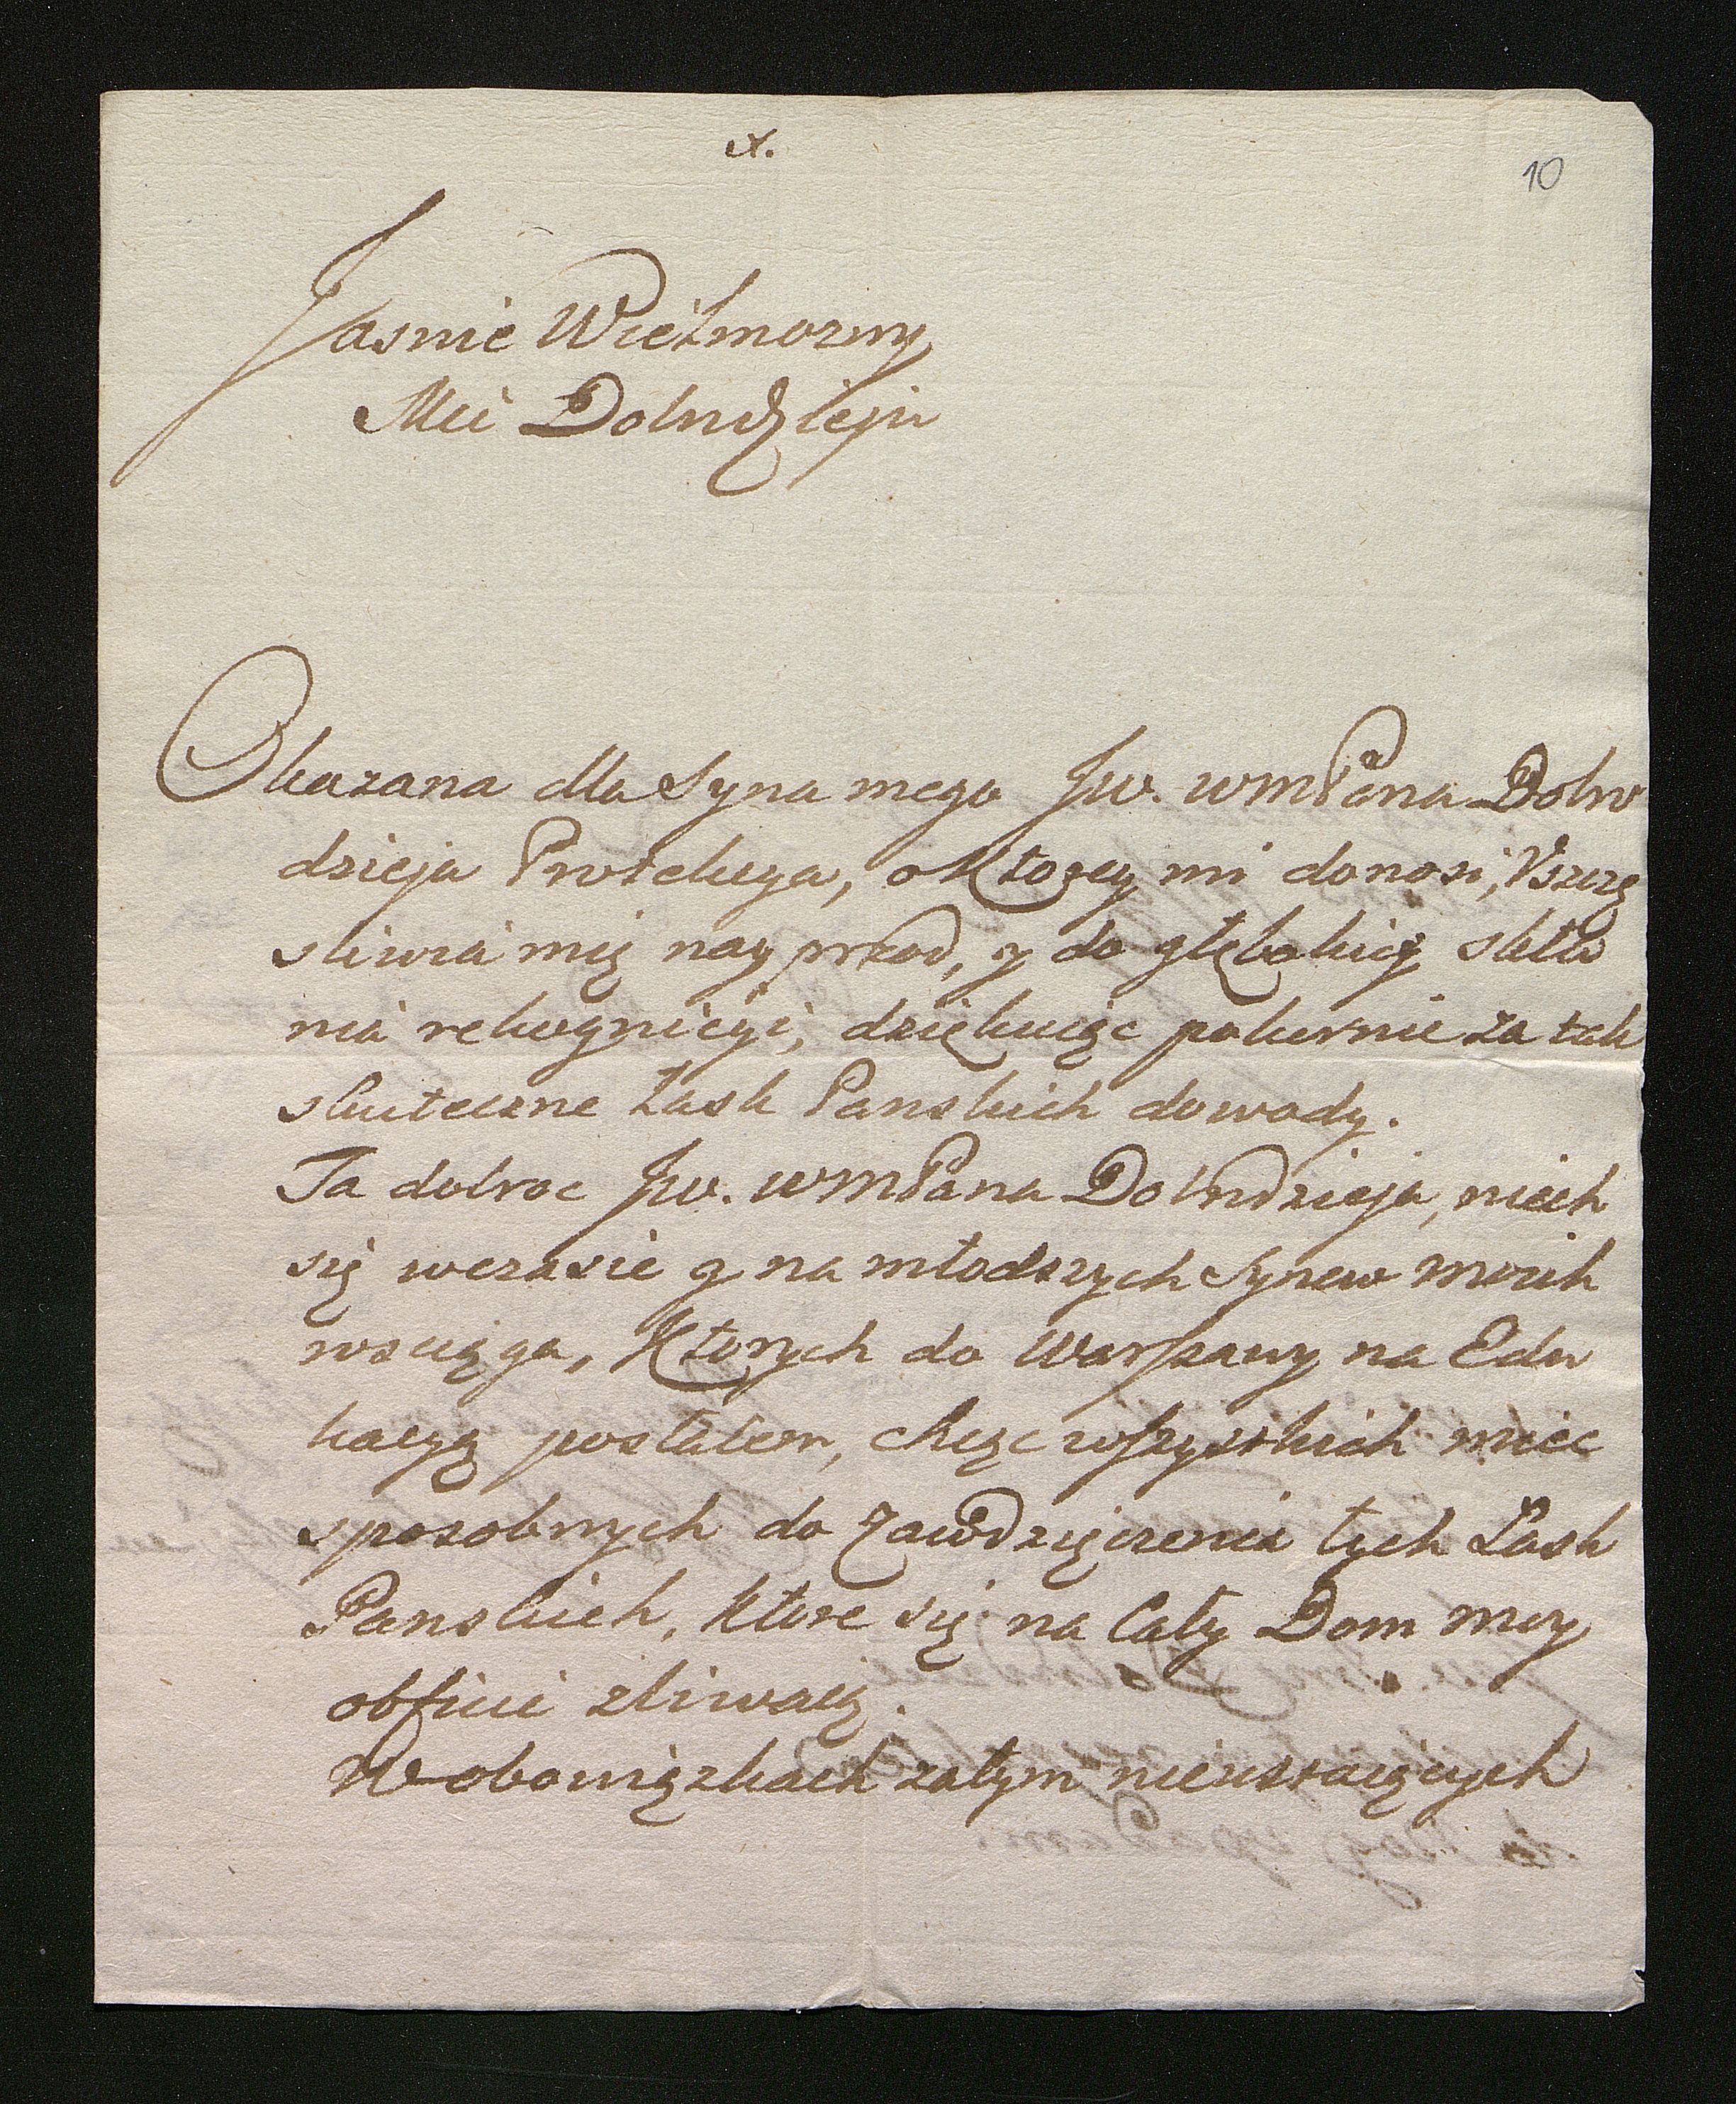 x.
10
Jasnie Wielmozny
Mci Dobrodzieju
Okazana dla Syna mego Jw. WMPana Dobro
dzieja Protekcya, o Ktorey mi donosi, Vszczę
sliwia mię nayprzod, y do głębokiey skła
nia rekognicyi, dziękuiąc pokornie za tak
skuteczne Łask Panskich dowody.
Ta dobroc Jw. WMPana Dobrodzieja, niech
się wczasie y na młodszych Synow moich
rosciąga, Ktorych do Warszawy na Edu
kacyą posłałem, chcąc wszystkich miec
sposobnych do Zawdzięczenia tych Łask
Panskich, ktore się na Cały Dom moy
obficie zliwaią.
W obowiązkach zatym nieustaiących